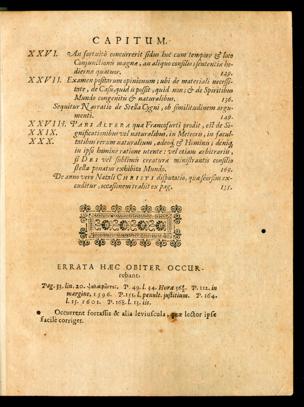 CAPITUM.
XXVI. An fortuitò concurrerit sidus hoc cum tempore & loco
Conjunctionis magnæ, an aliquo consilio: sententiæ ho-
diernæ quatuor. 129.
XXVII. Examen positarum opinionum; ubi de materiali necessi-
tate, de Casu, quid is possit, quid non; & de Spiritibus
Mundo congenitis & naturalibus. 136.
Sequitur Narratio de Stella Cygni, ob similitudinem argu-
menti. 149.
XXVIII. PARS ALTERA quæ Francofurti prodit, est de Si-
XXIX. gnificationibus vel naturalibus, in Meteora, in facul-
XXX. tates rerum naturalium, adeoq; & Homines; deniq;
in ipsos homines ratione utentes: vel etiam arbitrariis,
si DEI vel sublimis creaturæ ministrantis consilio
stella ponatur exhibita Mundo. 168.
De anno vero Natali CHRISTI disputatio, quæ seorsim ex-
cuditur, occasionem trahit ex pag. 131.
ERRATA HÆC OBITER OCCUR-
rebant.
Pag. 33. lin. 20. P. 49. l. 34. Horæ P. 112. in
margine, 1596. P. 151. l. penult. justitium. P. 164.
l. 15. 1601. P. 168. l. 13. iii.
Occurrent fortassis & alia leviuscula, quæ lector ipse
facile corriget.